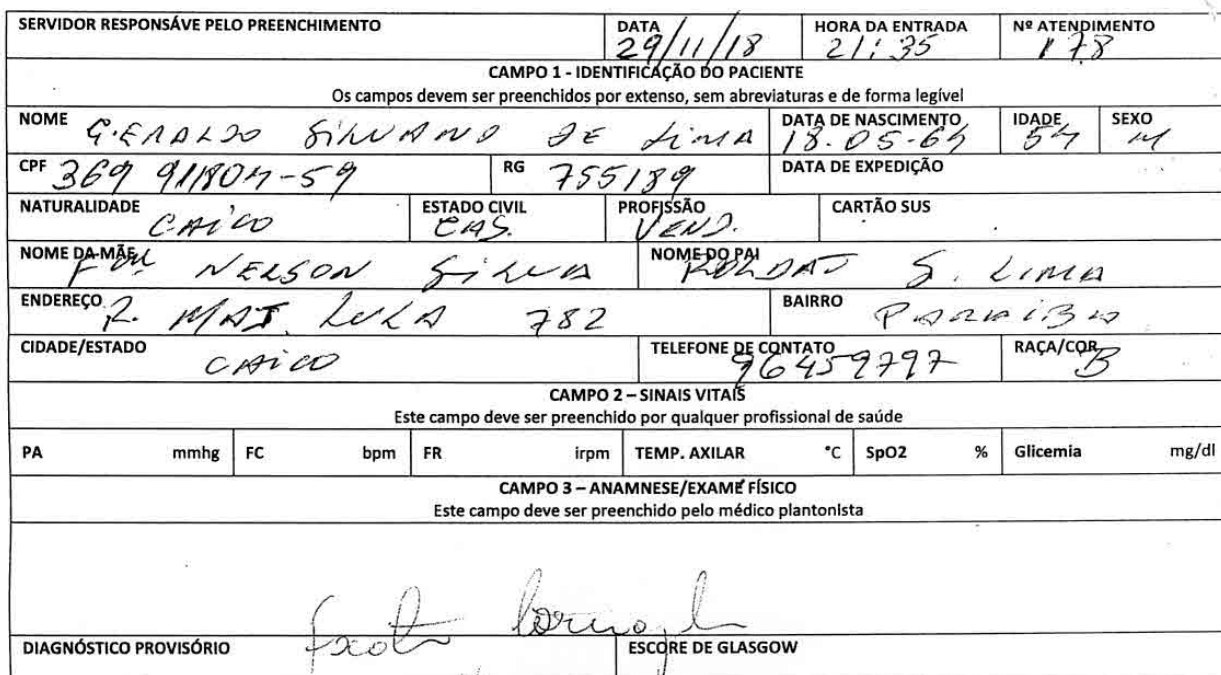 SERVIDOR RESPONSÁVE PELO PREENCHIMENTO DATA 29/11/18 HORA DA ENTRADA 21:35 Nº ATENDIMENTO 178
CAMPO 1 - IDENTIFICAÇÃO DO PACIENTE
Os campos devem ser preenchidos por extenso, sem abreviaturas e de forma legível
NOME GERALDO SILVANO DE LIMA DATA DE NASCIMENTO 18.05.64 IDADE 54 SEXO M
CPF 369 911804-59 RG 755189 DATA DE EXPEDIÇÃO
NATURALIDADE CAICO ESTADO CIVIL CAS. PROFISSÃO VEND. CARTÃO SUS
NOME DA MÃE NELSON SILVA NOME DO PAI S. LIMA
ENDEREÇO R. MAJ. LULA 782 BAIRRO PARAIBA
CIDADE/ESTADO CAICO TELEFONE DE CONTATO 96459797 RAÇA/COR B
CAMPO 2 – SINAIS VITAIS
Este campo deve ser preenchido por qualquer profissional de saúde
PA mmhg FC bpm FR irpm TEMP. AXILAR °C SpO2 % Glicemia mg/dl
CAMPO 3 – ANAMNESE/EXAME FÍSICO
Este campo deve ser preenchido pelo médico plantonista
DIAGNÓSTICO PROVISÓRIO ESCORE DE GLASGOW